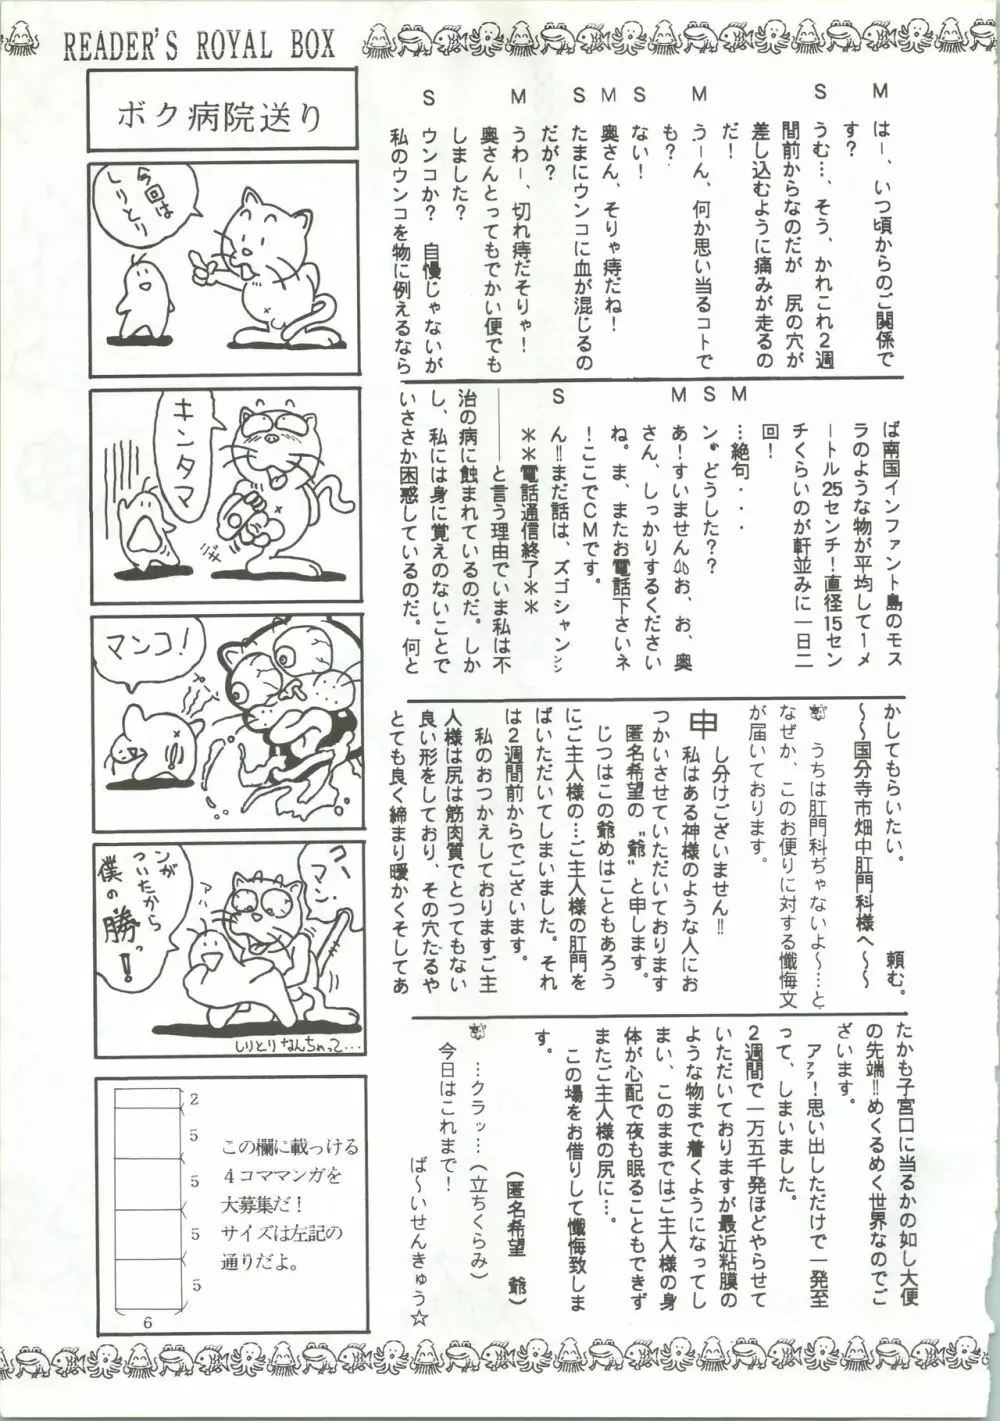 READER'S ROYAL BOX
M
はー、いつ頃からのご関係で
す?
S
うむ…、そう、かれこれ2週
間前からなのだが 尻の穴が
差し込むように痛みが走るの
だ!
M
うーん、何か思い当るコトで
も?
S
ない!
M
奥さん、そりゃ痔だね!
S
たまにウンコに血が混じるの
だが?
M
うわー、切れ痔だそりゃ!
奥さんとってもでかい便でも
しました?
S
ウンコか? 自慢じゃないが
私のウンコを物に例えるなら
ば南国インファント島のモス
ラのような物が平均して1メ
ートル25センチ!直径15セン
チくらいのが軒並みに一日二
回!
M
…絶句・・・
S
ン〃どうした??
M
あ!すいませんお、お、奥
さん、しっかりするください
ね。ま、またお電話下さいネ
!ここでCMです。
S
ん!!まだ話は、ズゴシャンシン
**電話通信終了**
――――と言う理由でいま私は不
治の病に蝕まれているのだ。しか
し、私には身に覚えのないことで
いささか困惑しているのだ。何と
かしてもらいたい。 頼む。
～～国分寺市畑中肛門科様へ～～
うちは肛門科ぢゃないよ～…と
なぜか、このお便りに対する懺悔文
が届いております。
申し分けございません!!
私はある神様のような人にお
つかいさせていただいております
匿名希望の〝爺〟と申します。
じつはこの爺めはこともあろう
にご主人様の…ご主人様の肛門を
ばいただいてしまいました。それ
は2週間前からでございます。
私のおつかえしておりますご主
人様は尻は筋肉質でとつてもない
良い形をしており、その穴たるや
とても良く締まり暖かくそしてあ
たかも子宮口に当るかの如し大便
の先端!!めくるめく世界なのでご
ざいます。
アァァ!思い出しただけで一発至
って、しまいました。
2週間で一万五千発ほどやらせて
いただいておりますが最近粘膜の
ような物まで着くようになってし
まい、このままではご主人様の身
体が心配で夜も眠ることもできず
またご主人様の尻に…。
この場をお借りして懺悔致しま
す。
(匿名希望 爺)
…クラッ…(立ちくらみ)
今日はこれまで!
ば～いせんきゅう☆
ボク病院送り
今回は
しりとり
キンタマ
ギュ
マンコ!
コ、
マン、
ンが
ついたから
僕の
勝っ!
アハ
しりとりなんちゃって…
2
5
5
5
5
6
この欄に載っける
4コママンガを
大募集だ!
サイズは左記の
通りだよ。